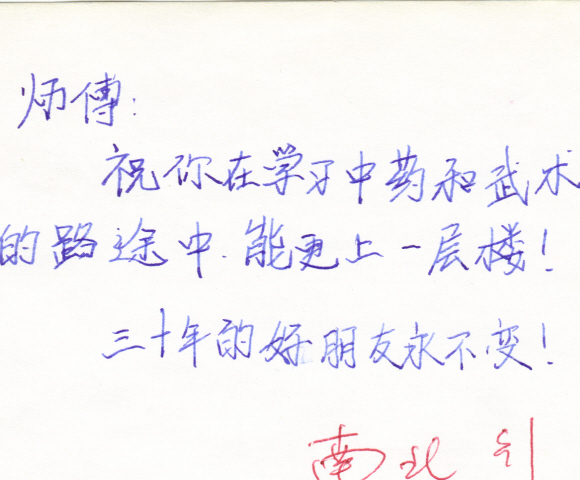 师傅：
祝你在学习中药和武术
的路途中.能更上一层楼！
三十年的好朋友永不变！
南北